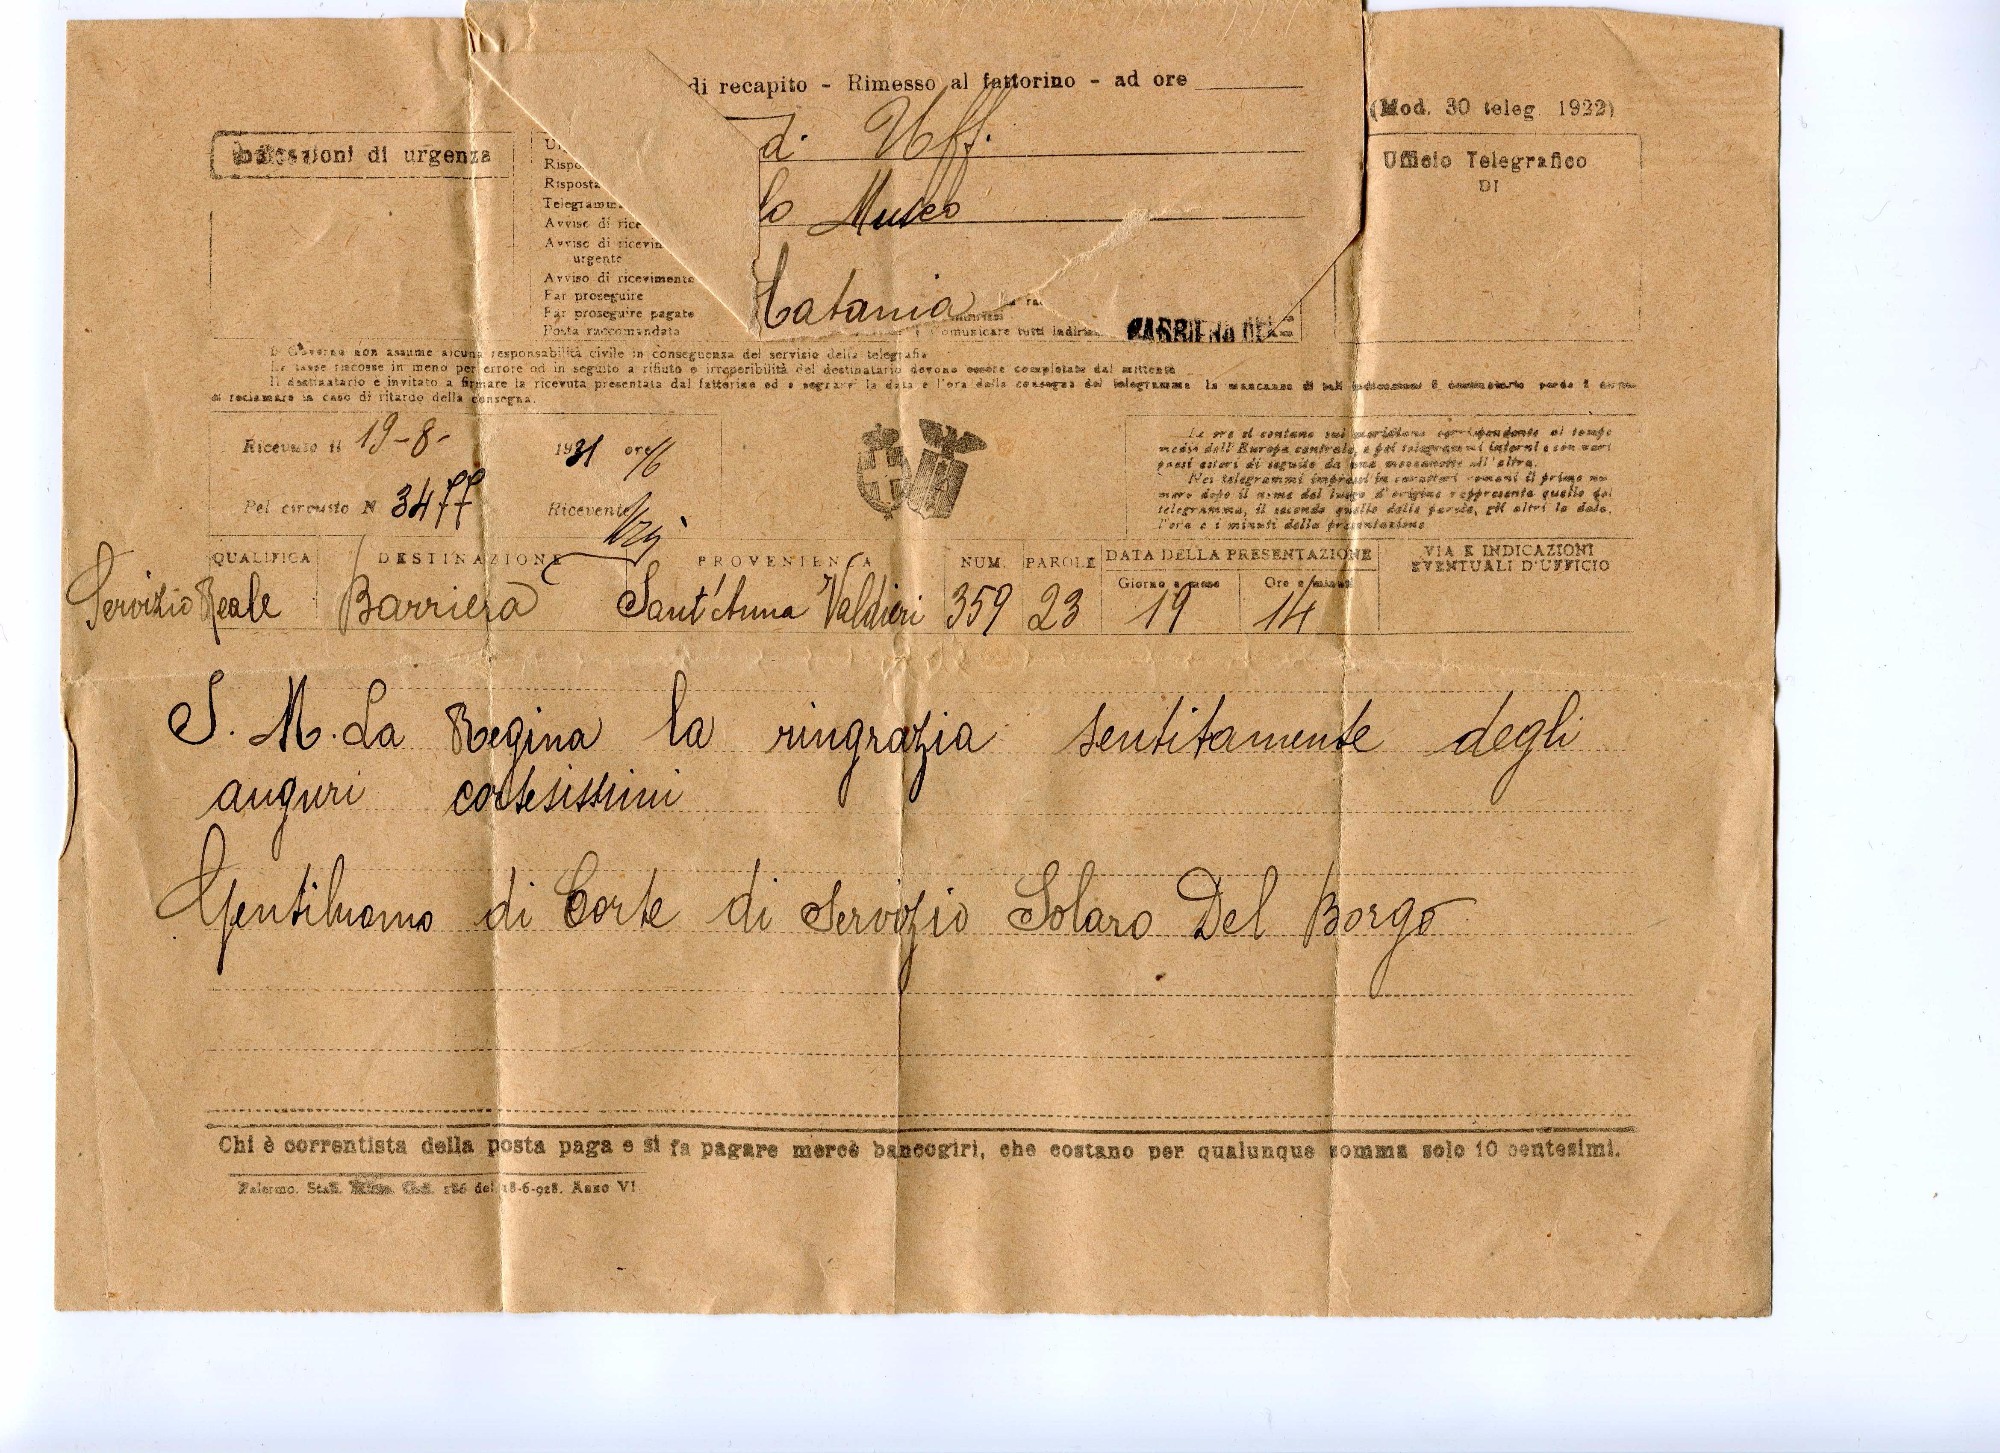 di recapito - Rimesso al fattorino - ad ore
(Mod. 30 teleg. 1922)
di urgenza
Ufficio Telegrafico
DI
d. Uff.
lo Museo
Catania
Telegramm
Avviso di rice
Avviso di ricevim
urgente
Avviso di ricevimento
Far proseguire
Far proseguire pagato
Posta raccomandata
comunicare tutti indiri
Il Governo non assume alcuna responsabilità civile in conseguenza del servizio della telegrafia
Le tasse riscosse in meno per errore od in seguito a rifiuto o irreperibilità del destinatario devono essere completate dal mittente
Il destinatario è invitato a firmare la ricevuta presentata dal fattorino ed a segnare la data e l'ora della consegna del telegramma
di reclamare in caso di ritardo della consegna.
Ricevuto il 19-8- 1931 ore 16
Pel circuito N 3477 Ricevente
Le ore si contano sul meridiano corrispondente al tempo
medio dell'Europa centrale, e pei telegrammi interni e con vari
paesi esteri di seguito da una mezzanotte all'altra.
Nei telegrammi impressi in caratteri romani il primo nu-
mero dopo il nome del luogo d'origine rappresenta quello del
telegramma, il secondo quello delle parole, gli altri la data,
l'ora e i minuti della presentazione
QUALIFICA DESTINAZIONE PROVENIENZA NUM. PAROLE DATA DELLA PRESENTAZIONE VIA E INDICAZIONI
EVENTUALI D'UFFICIO
Giorno e mese Ore e minuti
Servizio Reale Barriera Sant'Anna Valdieri 359 23 19 14
S. M. La Regina la ringrazia sentitamente degli
auguri cortesissimi
Gentiluomo di Corte di Servizio Solaro Del Borgo
Chi è correntista della posta paga e si fa pagare mercè bancogiri, che costano per qualunque somma solo 10 centesimi.
Palermo. Stab. 186 del 18-6-928. Anno VI